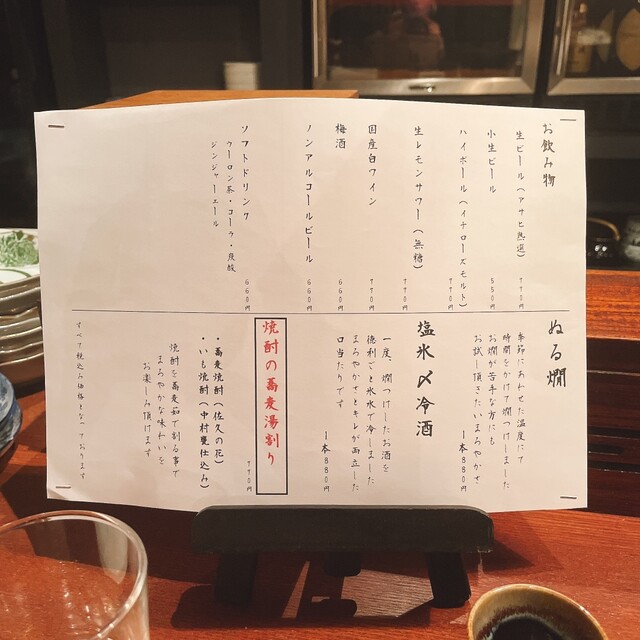 お飲み物
生ビール（アサヒ熟撰）
七七〇円
小生ビール
五五〇円
ハイボール（イチローズモルト）
七七〇円
生レモンサワー（無糖）
七七〇円
国産白ワイン
七七〇円
梅酒
六六〇円
ノンアルコールビール
六六〇円
ソフトドリンク
ウーロン茶・コーラ・炭酸
ジンジャーエール
六六〇円
ぬる燗
季節にあわせた温度にて
時間をかけて燗つけしました
お燗が苦手な方にも
お試し頂きたいまろやかさ
一本八八〇円
塩氷〆冷酒
一度、燗つけしたお酒を
徳利ごと氷水で冷しました
まろやかさとキレが両立した
口当たりです
一本八八〇円
焼酎の蕎麦湯割り
七七〇円
・蕎麦焼酎（佐久の花）
・いも焼酎（中村甕仕込み）
焼酎を蕎麦茹で割る事で
まろやかな味わいを
お楽しみ頂けます
すべて税込み価格となっております